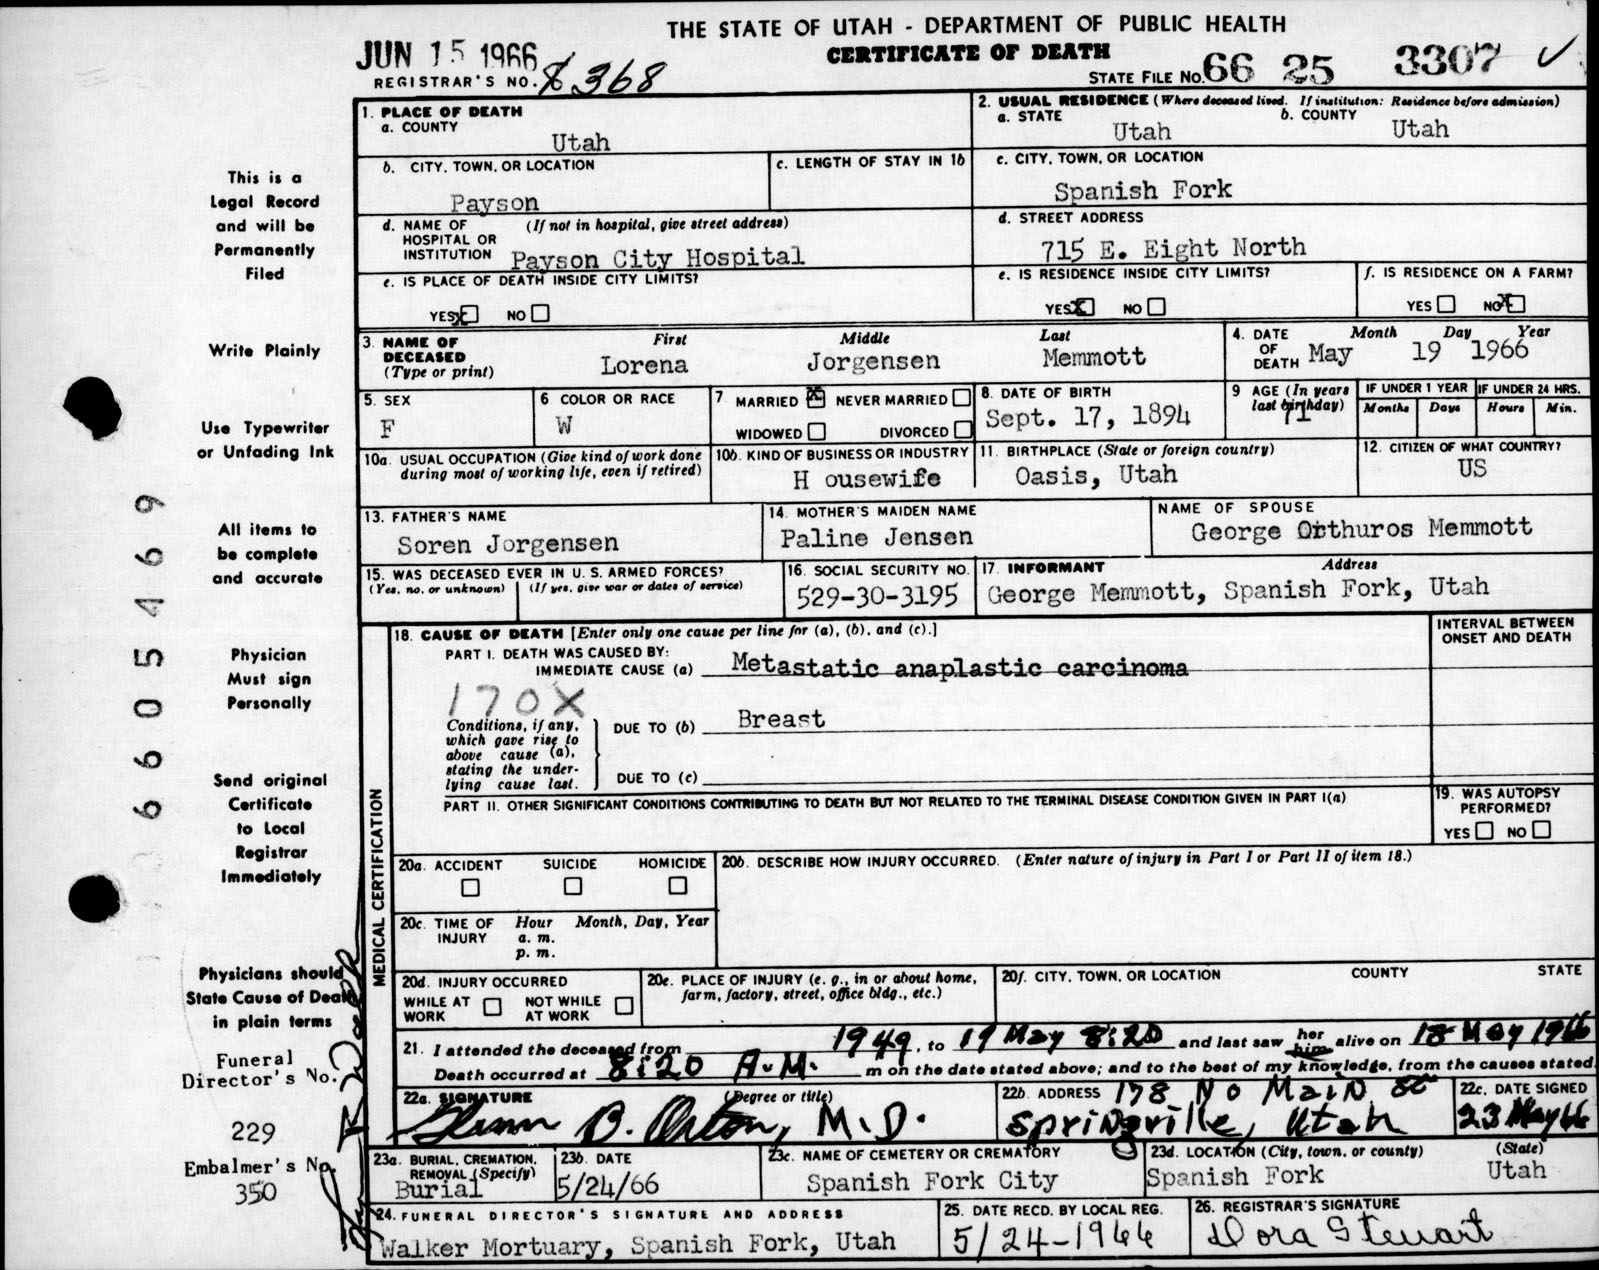 THE STATE OF UTAH - DEPARTMENT OF PUBLIC HEALTH
CERTIFICATE OF DEATH
JUN 15 1966
REGISTRAR'S NO. 368
STATE FILE NO. 66 25 3307 ✓
This is a
Legal Record
and will be
Permanently
Filed
Write Plainly
Use Typewriter
or Unfading Ink
All items to
be complete
and accurate
Physician
Must sign
Personally
Send original
Certificate
to Local
Registrar
Immediately
Physicians should
State Cause of Death
in plain terms
Funeral
Director's No.
229
Embalmer's No.
350
6605469
1. PLACE OF DEATH
a. COUNTY
Utah
2. USUAL RESIDENCE (Where deceased lived. If institution: Residence before admission)
a. STATE Utah b. COUNTY Utah
b. CITY, TOWN, OR LOCATION
Payson
c. LENGTH OF STAY IN 1b
c. CITY, TOWN, OR LOCATION
Spanish Fork
d. NAME OF HOSPITAL OR INSTITUTION (If not in hospital, give street address)
Payson City Hospital
d. STREET ADDRESS
715 E. Eight North
e. IS PLACE OF DEATH INSIDE CITY LIMITS?
YES X NO
e. IS RESIDENCE INSIDE CITY LIMITS?
YES X NO
f. IS RESIDENCE ON A FARM?
YES NO X
3. NAME OF DECEASED (Type or print)
First Middle Last
Lorena Jorgensen Memmott
4. DATE OF DEATH Month Day Year
May 19 1966
5. SEX
F
6 COLOR OR RACE
W
7 MARRIED X NEVER MARRIED
WIDOWED DIVORCED
8. DATE OF BIRTH
Sept. 17, 1894
9 AGE (In years last birthday)
71
IF UNDER 1 YEAR IF UNDER 24 HRS.
Months Days Hours Min.
10a. USUAL OCCUPATION (Give kind of work done during most of working life, even if retired)
10b. KIND OF BUSINESS OR INDUSTRY
H ousewife
11. BIRTHPLACE (State or foreign country)
Oasis, Utah
12. CITIZEN OF WHAT COUNTRY?
US
13. FATHER'S NAME
Soren Jorgensen
14. MOTHER'S MAIDEN NAME
Paline Jensen
NAME OF SPOUSE
George Orthuros Memmott
15. WAS DECEASED EVER IN U. S. ARMED FORCES?
(Yes, no, or unknown) (If yes, give war or dates of service)
16. SOCIAL SECURITY NO.
529-30-3195
17. INFORMANT Address
George Memmott, Spanish Fork, Utah
MEDICAL CERTIFICATION
18. CAUSE OF DEATH [Enter only one cause per line for (a), (b), and (c).]
INTERVAL BETWEEN ONSET AND DEATH
PART I. DEATH WAS CAUSED BY:
IMMEDIATE CAUSE (a) Metastatic anaplastic carcinoma
170X
Conditions, if any, which gave rise to above cause (a), stating the underlying cause last.
DUE TO (b) Breast
DUE TO (c)
PART II. OTHER SIGNIFICANT CONDITIONS CONTRIBUTING TO DEATH BUT NOT RELATED TO THE TERMINAL DISEASE CONDITION GIVEN IN PART I(a)
19. WAS AUTOPSY PERFORMED?
YES NO
20a. ACCIDENT SUICIDE HOMICIDE
20b. DESCRIBE HOW INJURY OCCURRED. (Enter nature of injury in Part I or Part II of item 18.)
20c. TIME OF INJURY Hour Month, Day, Year
a. m.
p. m.
20d. INJURY OCCURRED
WHILE AT WORK NOT WHILE AT WORK
20e. PLACE OF INJURY (e. g., in or about home, farm, factory, street, office bldg., etc.)
20f. CITY, TOWN, OR LOCATION COUNTY STATE
21. I attended the deceased from 1949, to 19 May 8:20 and last saw her him alive on 18 May 1966
Death occurred at 8:20 A.M. m on the date stated above; and to the best of my knowledge, from the causes stated.
22a. SIGNATURE (Degree or title)
B. Orton, M.D.
22b. ADDRESS 178 No Main St
Springville, Utah
22c. DATE SIGNED
23 May 66
23a. BURIAL, CREMATION, REMOVAL (Specify)
Burial
23b. DATE
5/24/66
23c. NAME OF CEMETERY OR CREMATORY
Spanish Fork City
23d. LOCATION (City, town, or county) (State)
Spanish Fork Utah
24. FUNERAL DIRECTOR'S SIGNATURE AND ADDRESS
Walker Mortuary, Spanish Fork, Utah
25. DATE RECD. BY LOCAL REG.
5/24-1966
26. REGISTRAR'S SIGNATURE
Dora Stewart